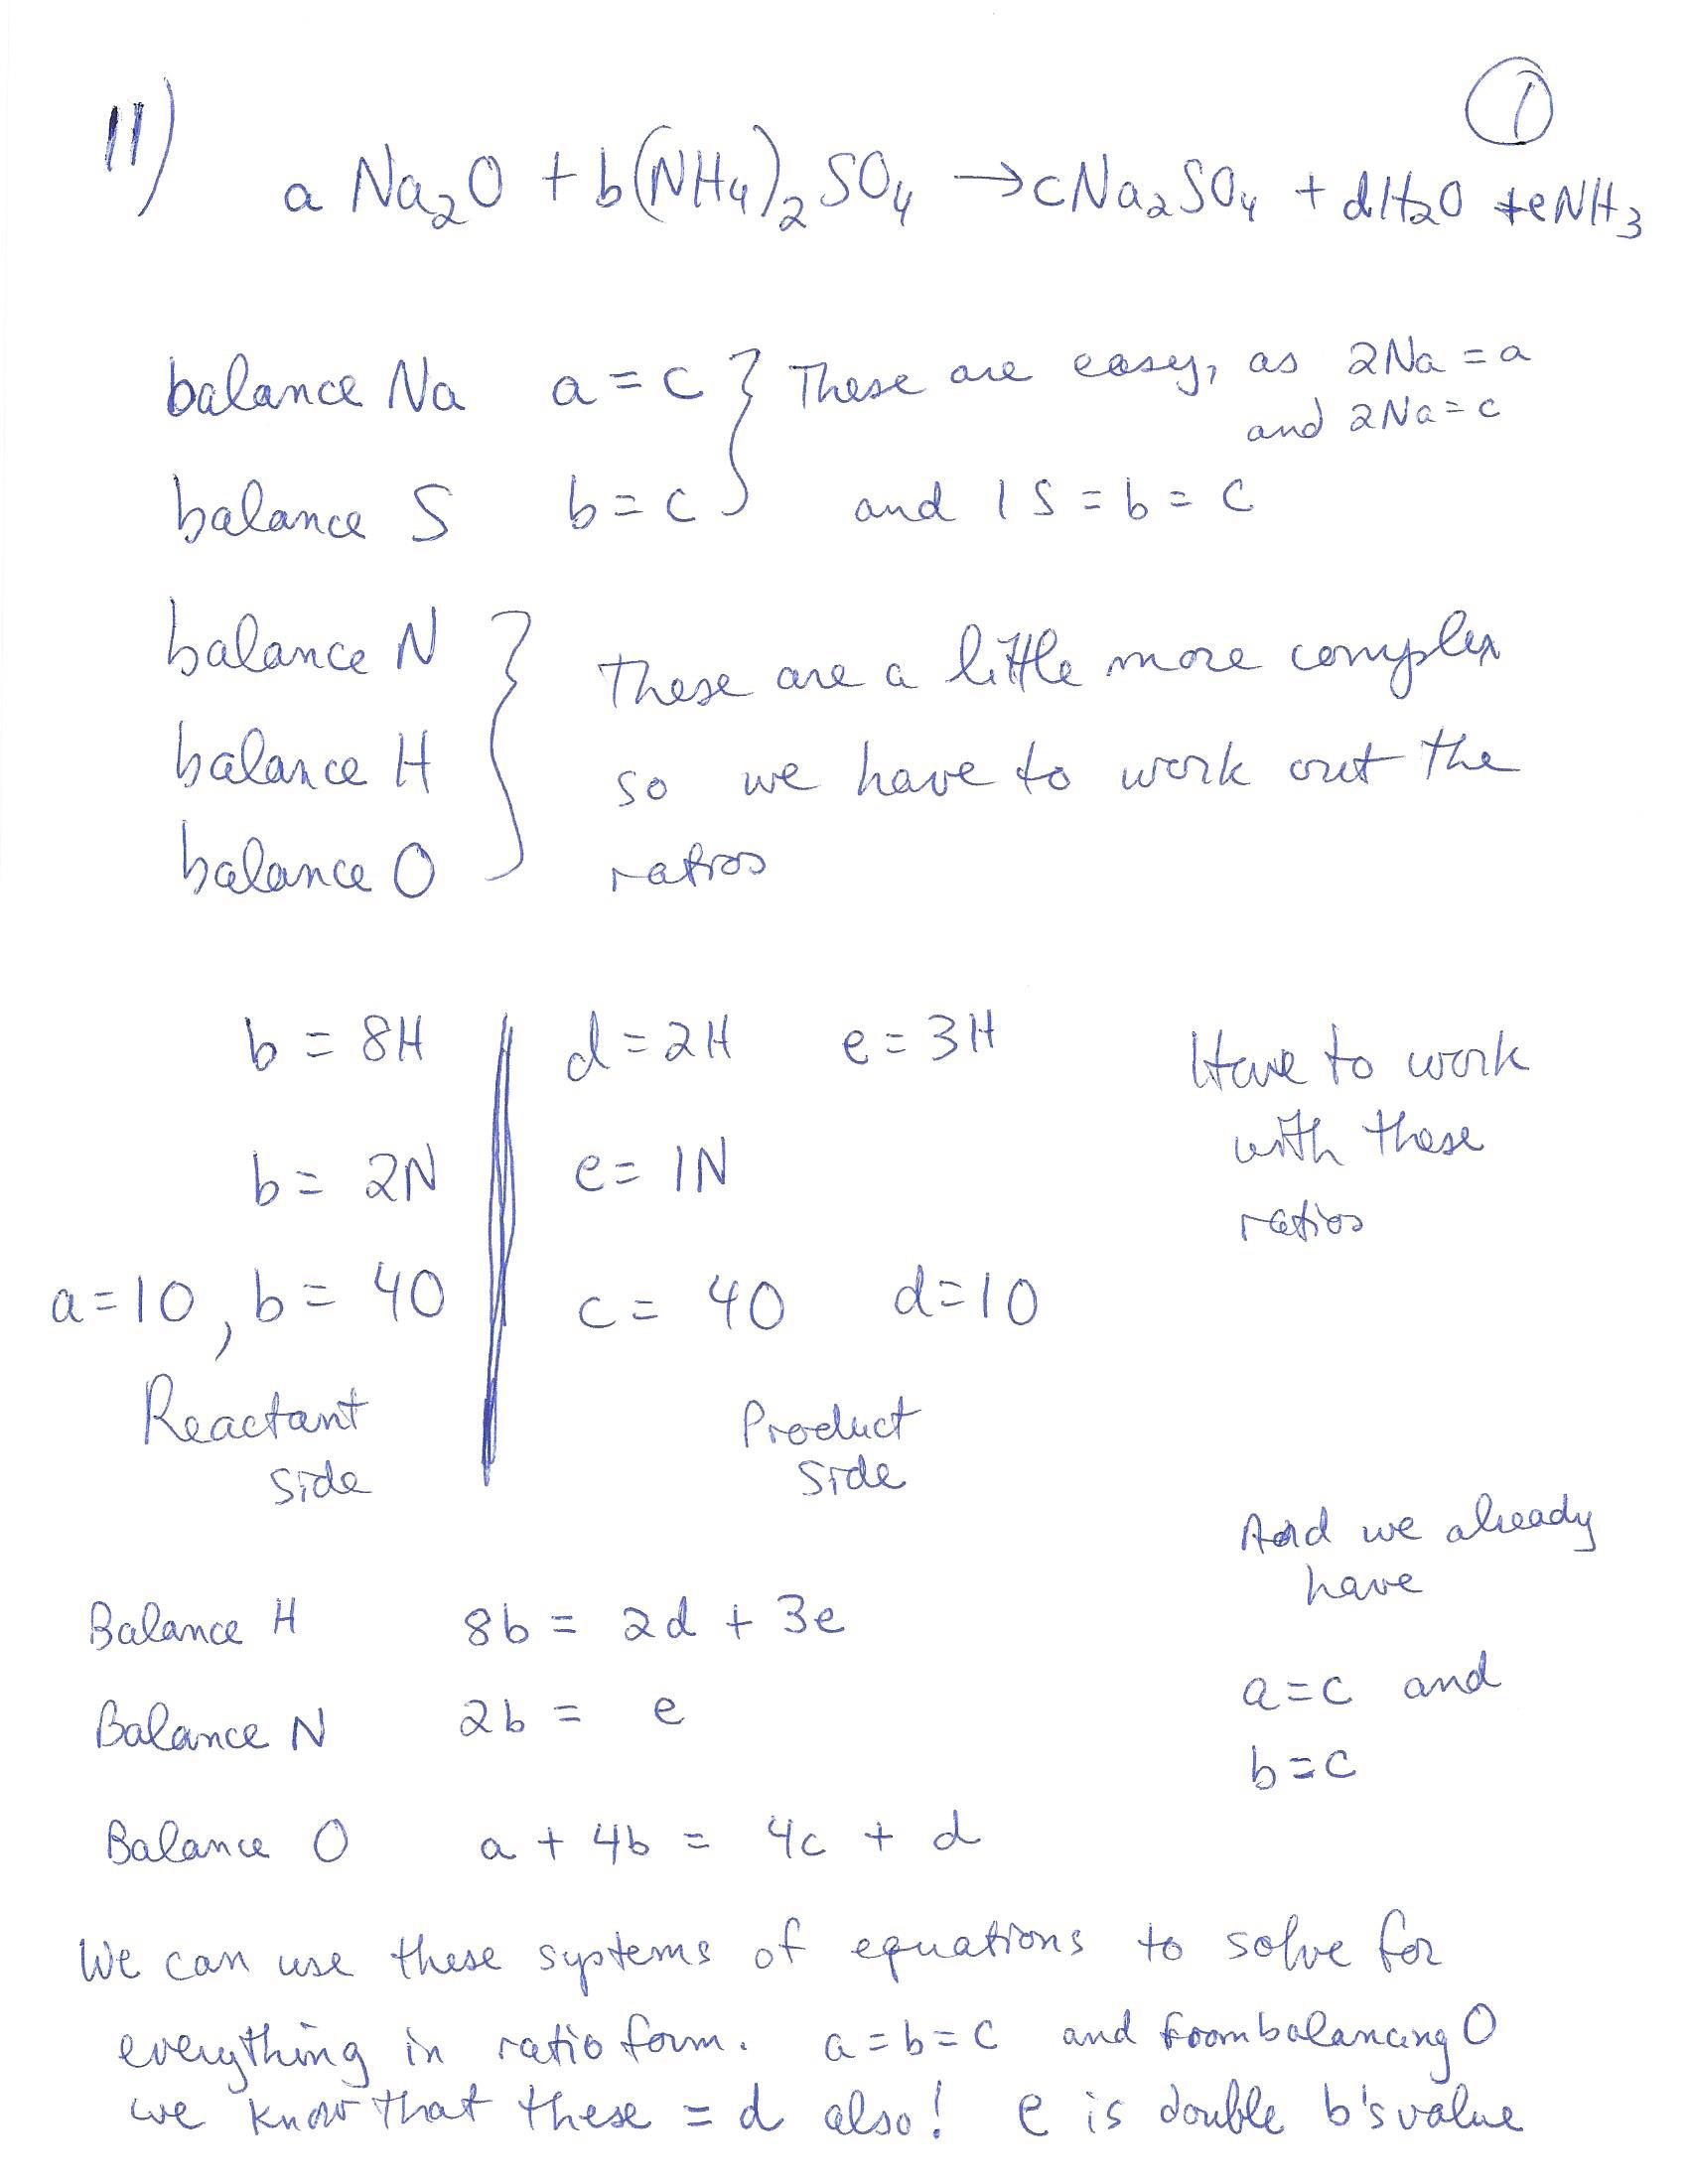 1
11)
a Na₂O + b(NH₄)₂ SO₄ → cNa₂SO₄ + dH₂O + eNH₃
balance Na a = c } These are easy, as 2Na = a
and 2Na = c
balance S b = c and 1 S = b = c
balance N
balance H
balance O
These are a little more complex
so we have to work out the
ratios
b = 8H d = 2H e = 3H
b = 2N e = 1N
a = 1O, b = 4O c = 4O d = 1O
Have to work
with these
ratios
Reactant
side
Product
side
And we already
have
a = c and
b = c
Balance H 8b = 2d + 3e
Balance N 2b = e
Balance O a + 4b = 4c + d
We can use these systems of equations to solve for
everything in ratio form. a = b = c and from balancing O
we know that these = d also! e is double b's value